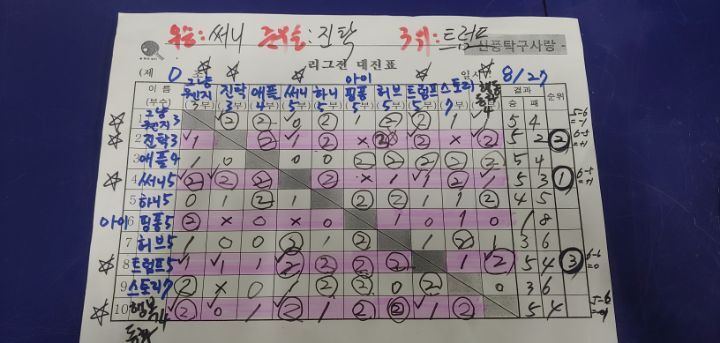 우승:써니 준우승:진탁 3위:트럼프
신풍탁구사랑
리그전 대진표
(제 0 조) 일시 8/27
이름 (부수) 그냥 진탁 애플 써니 하니 아이 핑퐁 허브 트럼프 스토리 행복 결과 순위
(3부) (3부) (4부) (5부) (5부) (5부) (5부) (5부) (7부) 승 패
1 그냥 3 ② ② 0 ② 1 ② ② 1 ② 5 4
2 진탁3 1 ② 1 ② x ② ② x ② 5 2 ②
3 애플4 1 0 0 0 ② ② ② ② ② 5 4
4 써니5 ② ② ② ② x 1 1 ② 1 5 3 ①
5 하니5 0 1 ② 1 ② ② 1 ② 1 4 5
6 아이 핑퐁5 ② x 0 x 0 1 0 1 0 1 8
7 허브5 1 0 0 ② 1 ② 1 ② 1 3 6
8 트럼프5 1 1 1 ② ② ② ② 1 ② 5 4 ③
9 스토리7 ② x 0 1 ② ② 0 ② 0 3 6
10 행복 4 ② 0 1 ② 1 ② ② 1 ② 5 4